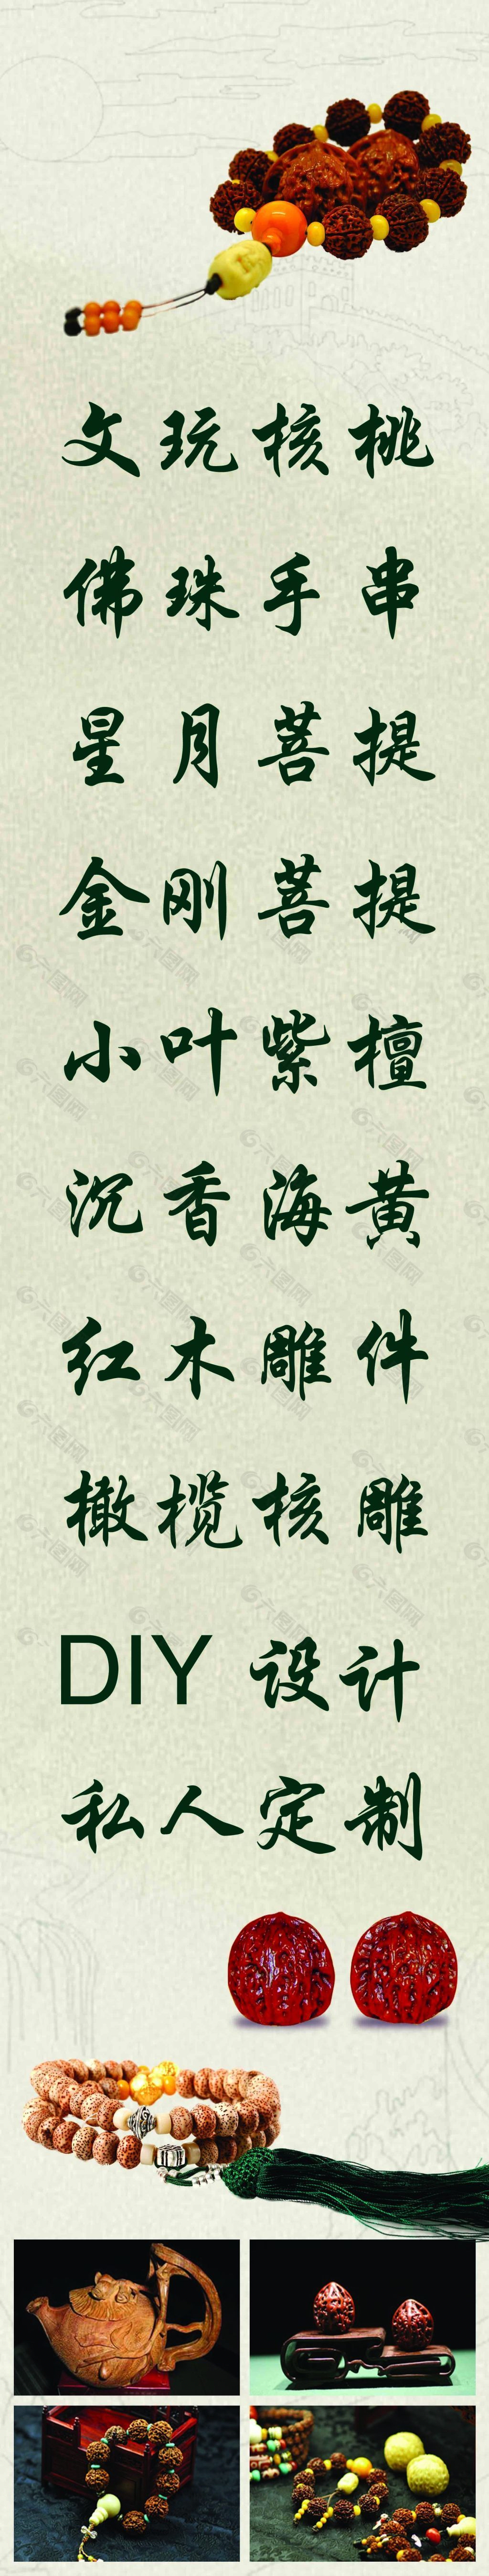 文玩核桃
佛珠手串
星月菩提
金刚菩提
小叶紫檀
沉香海黄
红木雕件
橄榄核雕
DIY 设计
私人定制